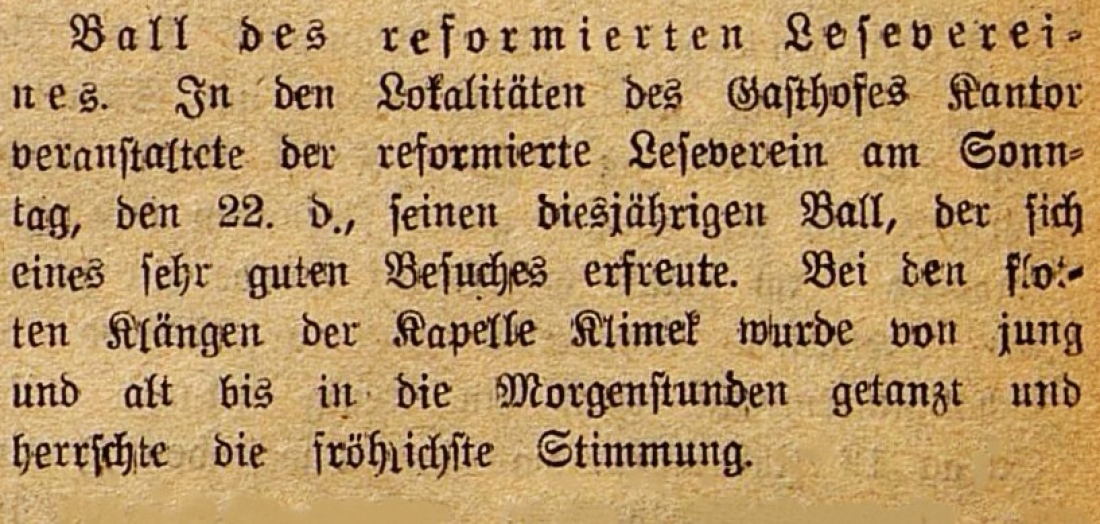 Ball des reformierten Leseverei-
nes. In den Lokalitäten des Gasthofes Kantor
veranstaltete der reformierte Leseverein am Sonn-
tag, den 22. d., seinen diesjährigen Ball, der sich
eines sehr guten Besuches erfreute. Bei den flot-
ten Klängen der Kapelle Klimek wurde von jung
und alt bis in die Morgenstunden getanzt und
herrschte die fröhlichste Stimmung.